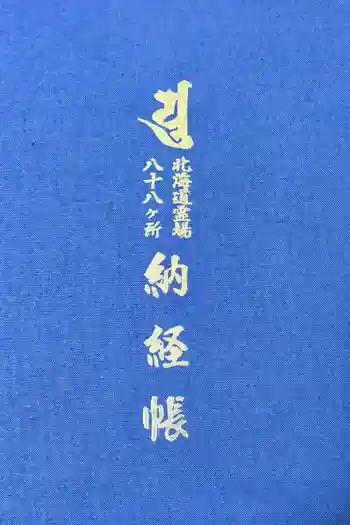 北海道霊場
八十八ヶ所
納経帳